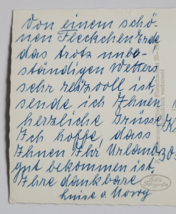 Von einem schö-
nen Fleckchen Erde
das trotz unbe-
ständigen Wetters
sehr reizvoll ist,
sende ich Ihnen
herzliche Grüsse
Ich hoffe, dass
Ihnen Ihr Urlaub
gut bekommen ist.
Ihre dankbare